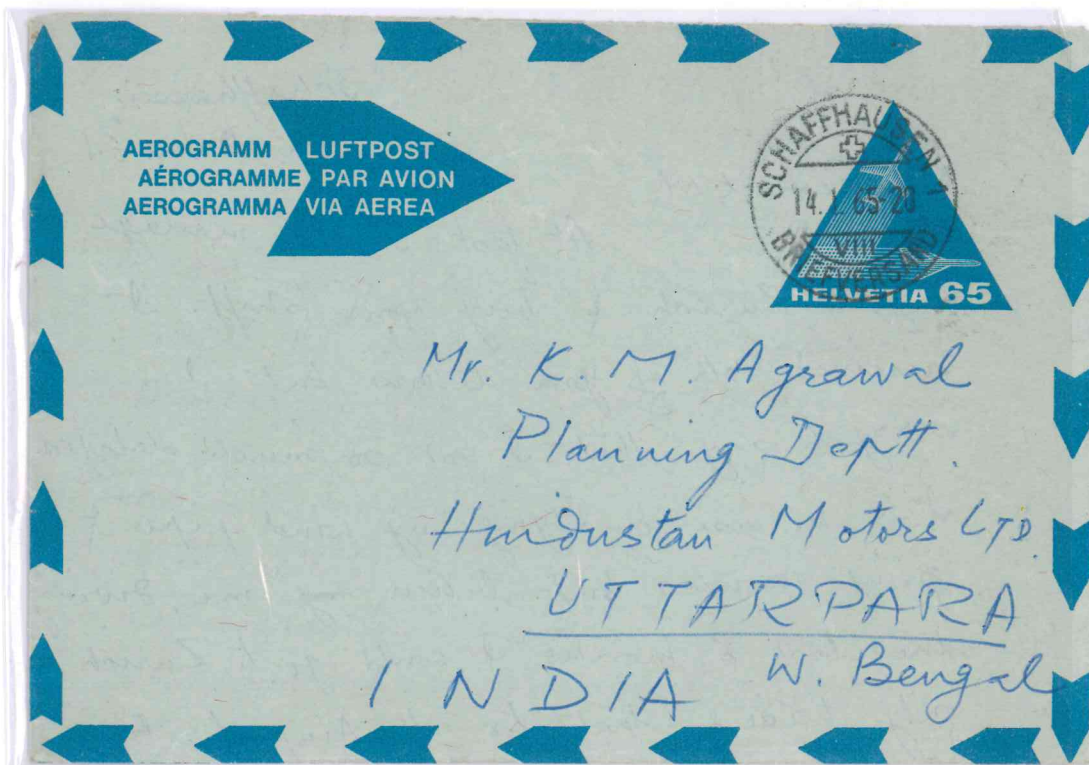 AEROGRAMM LUFTPOST
AÉROGRAMME PAR AVION
AEROGRAMMA VIA AEREA
SCHAFFHAUSEN 1
14. I. 65-20
VIII
BRIEFVERSAND
HELVETIA 65
Mr. K M. Agrawal
Planning Deptt.
Hindustan Motors LTD.
UTTARPARA
W. Bengal
INDIA